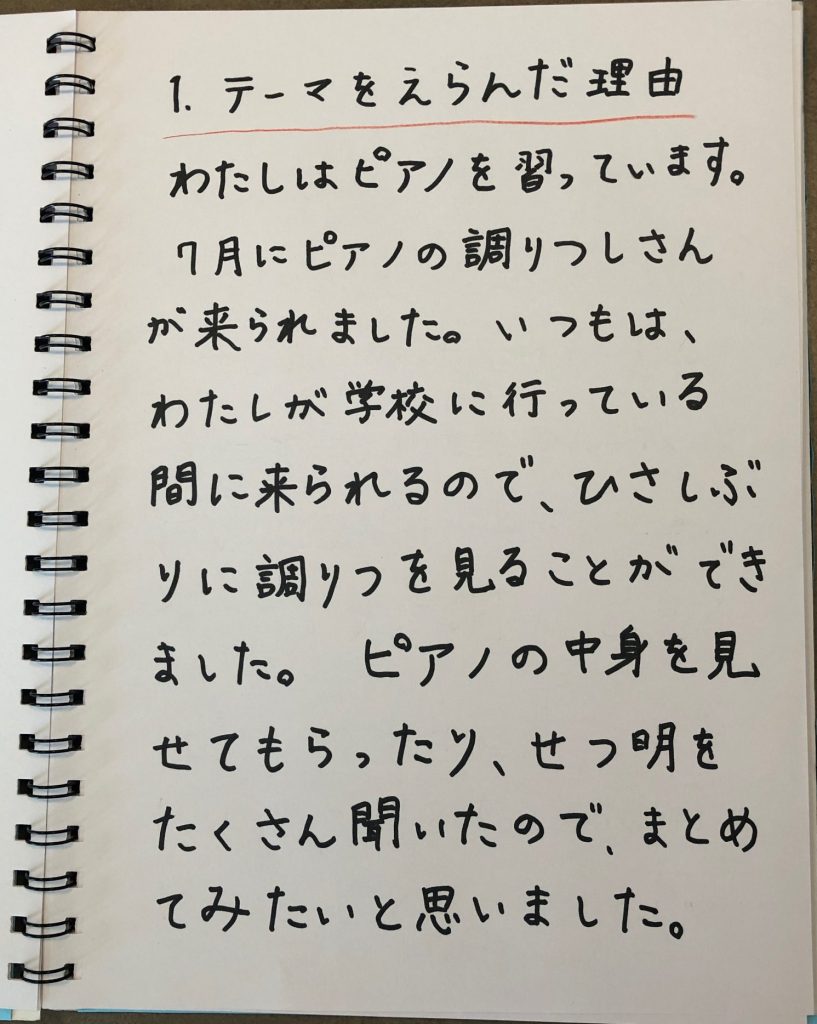 1. テーマをえらんだ理由
わたしはピアノを習っています。
7月にピアノの調りつしさん
が来られました。いつもは、
わたしが学校に行っている
間に来られるので、ひさしぶ
りに調りつを見ることができ
ました。 ピアノの中身を見
せてもらったり、せつ明を
たくさん聞いたので、まとめ
てみたいと思いました。